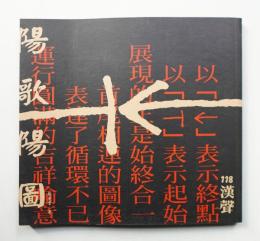 以「←」表示終點
以「⊣」表示起始
展現的正是始終合一
相連的圖像
表達了循環不已
運行圓滿的吉祥喻意
118
漢聲
陽歌陽圖